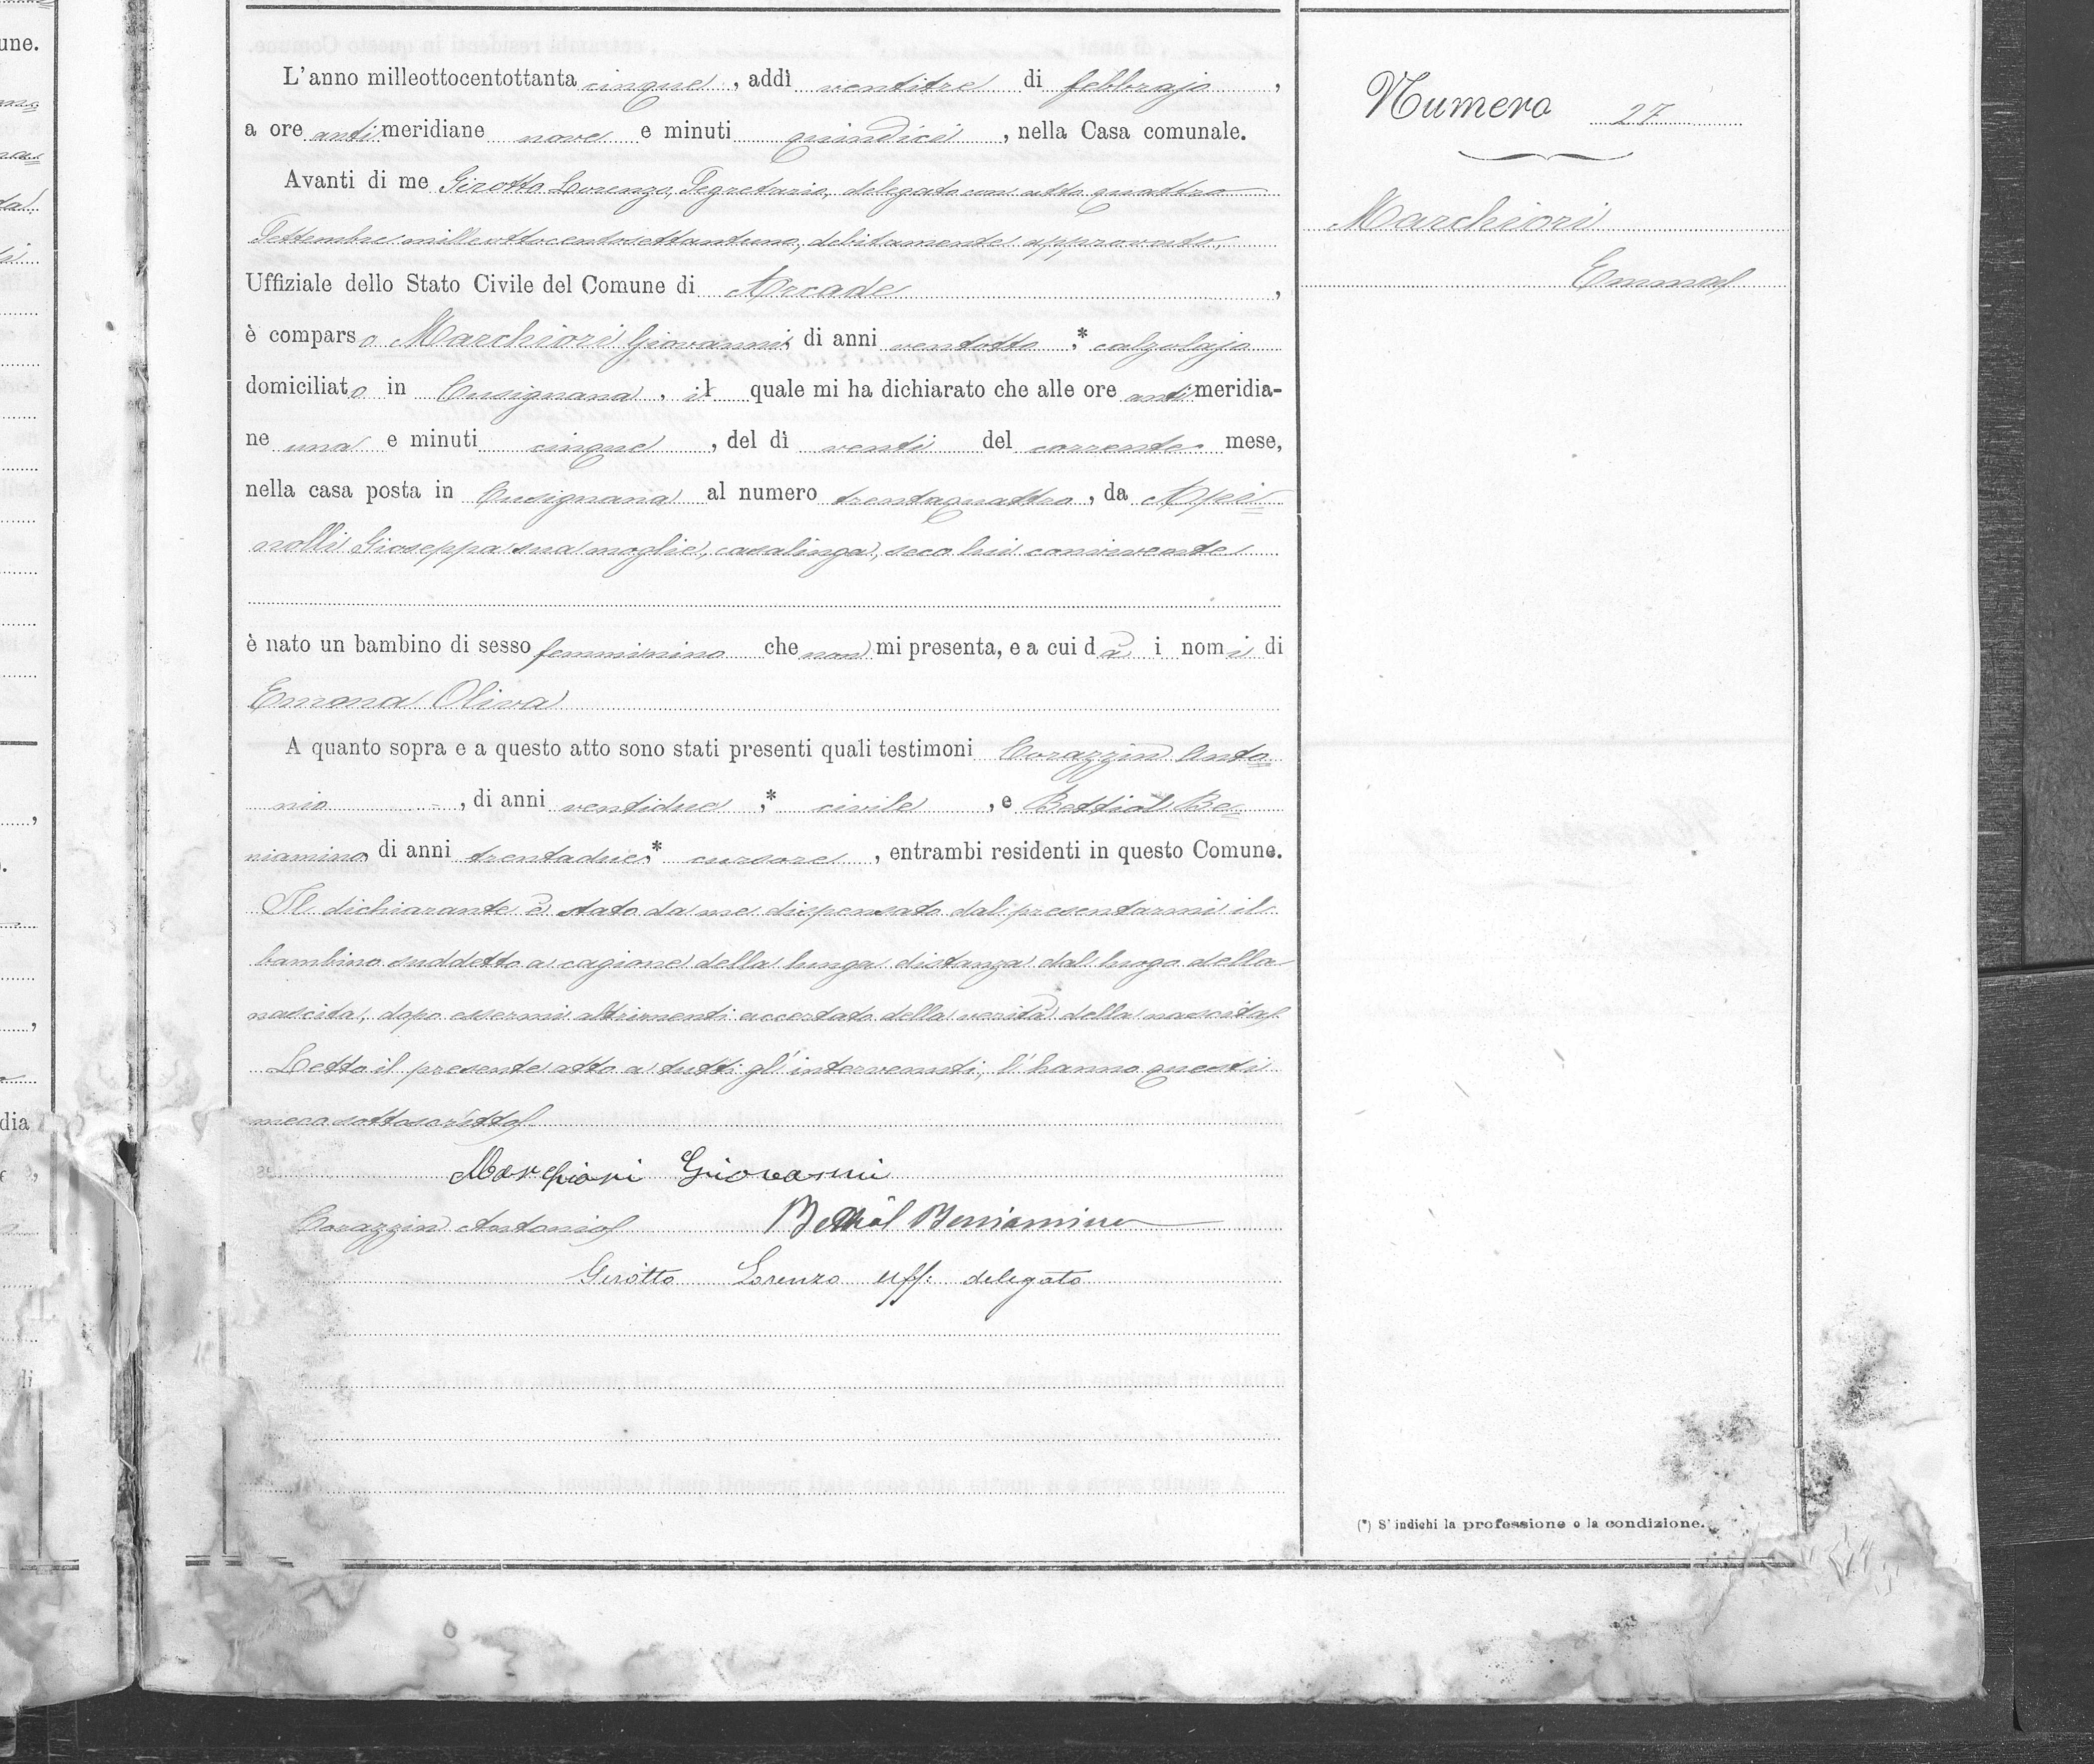 L'anno milleottocentottanta cinque, addì ventitre di febbrajo,
a ore antimeridiane nove e minuti quindici, nella Casa comunale.
Avanti di me Girotto Lorenzo, Segretario, delegato con atto quattro
Settembre milleottocentosettantuno, debitamente approvato,
Uffiziale dello Stato Civile del Comune di Arcade,
è comparso Marchiori Giovanni, di anni ventotto,* calzolajo
domiciliato in Cusignana, il quale mi ha dichiarato che alle ore antimeridia-
ne una e minuti cinque, del dì venti del corrente mese,
nella casa posta in Cusignana al numero trentaquattro, da
nolli Gioseppa sua moglie, casalinga, seco lui convivente
è nato un bambino di sesso femminino che non mi presenta, e a cui dà i nomi di
Emma Oliva
A quanto sopra e a questo atto sono stati presenti quali testimoni Corazzin Anto=
nio, di anni ventidue,* civile, e Bettiol Be=
niamino, di anni trentadue,* cursore, entrambi residenti in questo Comune.
Il dichiarante è stato da me dispensato dal presentarmi il
bambino suddetto a cagione della lunga distanza dal luogo della
nascita, dopo essermi altrimenti accertato della verità della nascita
Letto il presente atto a tutti gl'intervenuti, l'hanno questi
meco sottoscritto
Marchiori Giovanni
Corazzin Antonio Bettiol Beniamino
Girotto Lorenzo uff: delegato
Numero 27
Marchiori
Emma
(*) S'indichi la professione o la condizione.
une.
dia
di